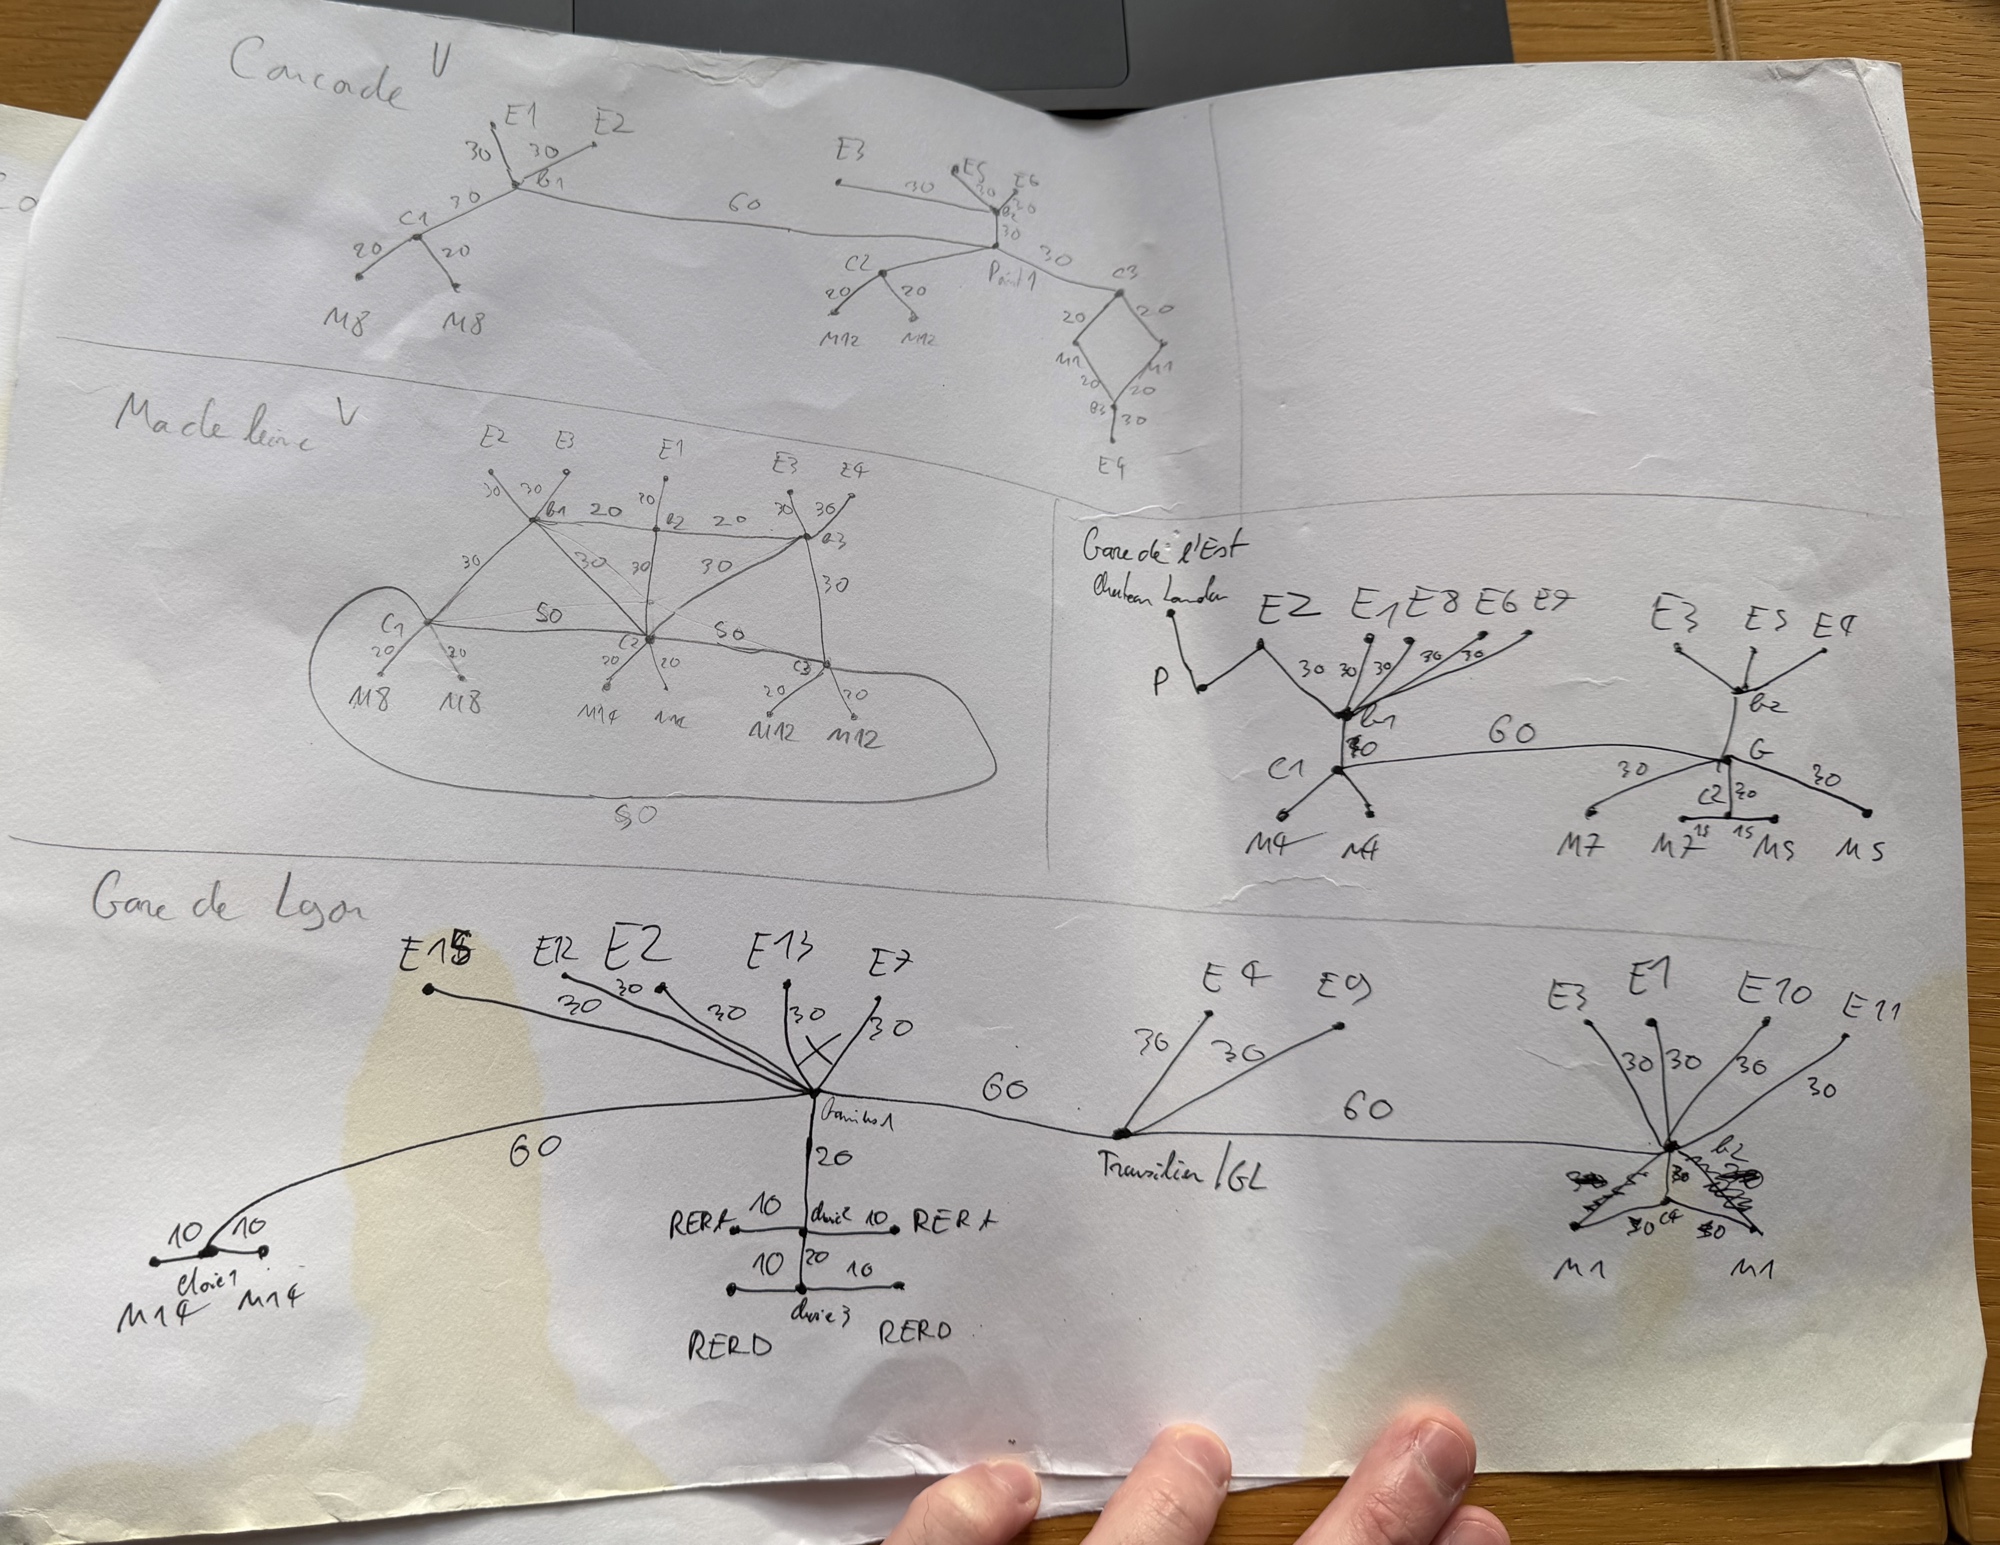 Concorde V
E1
E2
30
30
B1
30
C1
20
20
M8
M8
60
E3
E5
E6
30
30
30
B2
30
Point 1
30
C2
20
20
M12
M12
C3
20
20
M1
M1
20
20
B3
30
E4
Madeleine V
E2
E3
E1
E3
E4
30
30
20
30
30
B1
20
B2
20
B3
30
30
30
30
30
C1
50
C2
50
C3
20
20
20
20
20
20
M8
M8
M14
M14
M12
M12
50
Gare de l'Est
Chateau Landon
P
E2
E1
E8
E6
E7
30
30
30
30
30
B1
30
C1
M4
M4
60
E3
E5
E4
B2
G
30
30
C2
30
15
15
M7
M7
M5
M5
Gare de Lyon
E15
E12
E2
E13
E7
30
30
30
30
30
60
60
20
10
10
M14
M14
RERA
10
10
RERA
10
20
10
RERD
RERD
E4
E9
30
30
Transilien/GL
60
E3
E1
E10
E11
30
30
30
30
B2
30
C4
30
30
M1
M1